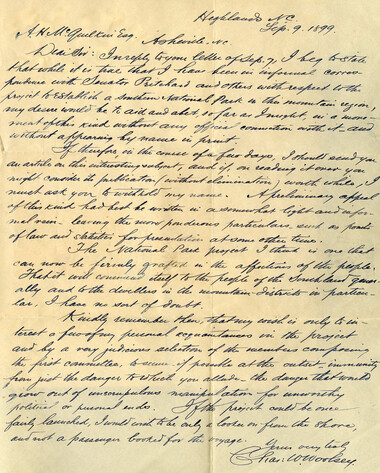 Highlands N.C.
Sep. 9. 1899.
A. H. McQuilkin Esq.
Asheville, N.C.
Dear Sir: In reply to your letter of Sep. 7, I beg to state
that while it is true that I have been in informal corres-
pondence with Senator Pritchard and others with respect to the
project to establish a southern National Park in this mountain region,
my desire would be to aid and abet, so far as I might, in a move-
ment of this kind, without any official connection with it — and
without appearing by name in print.
If therefore in the course of a few days, I should send you
an article on this interesting subject and if, on reading it over you
might consider its publication (without elimination) worth while, I
must ask you to withhold my name. A preliminary appeal
of this kind had best be written in a somewhat light and infor-
mal vein: leaving the more ponderous particulars, such as points
of law and statistics for presentation at some other time.
The National Park project I think is one that
can now be firmly grafted in the affections of the people.
That it will commend itself to the people of the Southland gener-
ally and to the dwellers in the mountain districts in particu-
lar, I have no sort of doubt.
Kindly remember then, that my wish is only to in-
terest a few of my personal acquaintances in the project
and by a very judicious selection of the members composing
the first committee, to secure if possible at the outset immunity
from just the danger to which you allude — the danger that would
grow out of unscrupulous manipulation for unworthy
political or personal ends. If the project could be once
fairly launched, I would wish to be only a looker on from the shore,
and not a passenger booked for the voyage.
Yours very truly
Chas. W. Woolsey.